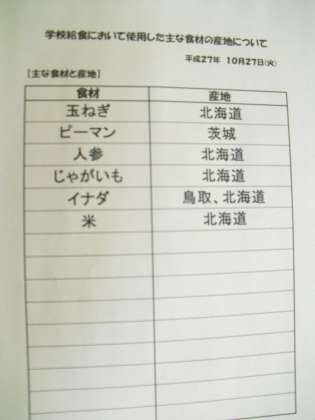 学校給食において使用した主な食材の産地について
平成27年 10月27日(火)
[主な食材と産地]
食材 産地
玉ねぎ 北海道
ピーマン 茨城
人参 北海道
じゃがいも 北海道
イナダ 鳥取、北海道
米 北海道